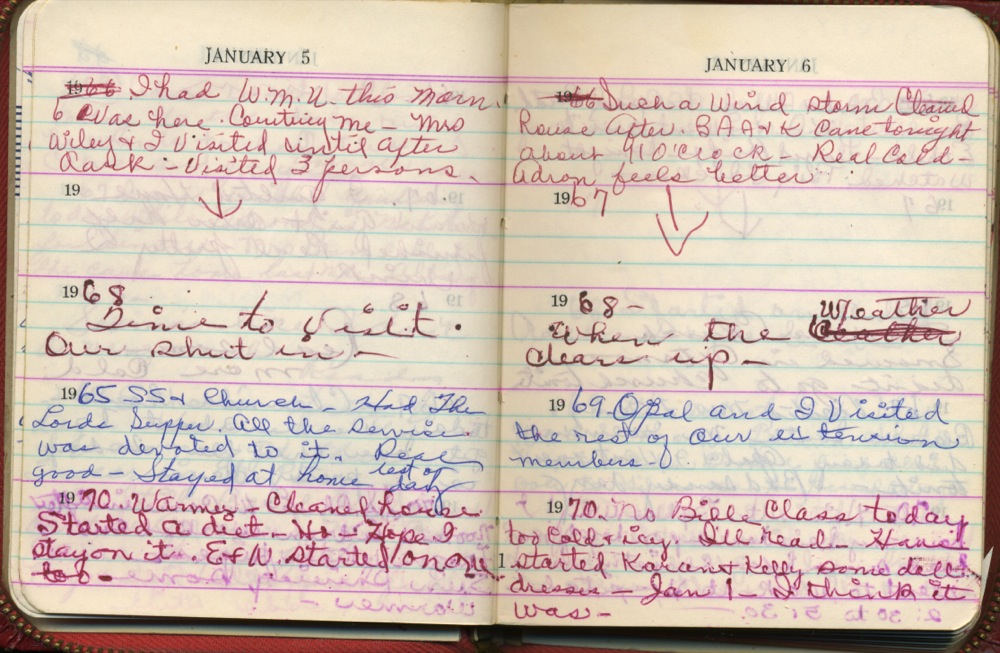 JANUARY 5
1966 I had W.M.U. this Morn.
6 was here. Courting me – Mrs
Wiley & I visited until after
dark – Visited 3 persons.
19
1968
Time to visit.
Our shut in –
1965 SS & Church – Had The
Lords Supper. All the service
was devoted to it. Real
good – Stayed at home rest of
day
1970. Warmer – Cleaned house.
Started a diet – Ho – Hope I
stay on it. E & W. started on one
too –
JANUARY 6
1966 Such a Wind storm Cleaned
house after. B A A & K came tonight
about 9 10 o'clock – Real Cold –
Adron feels better
1967
1968 –
When the Weather
clears up –
1969. Opal and I Visited
the rest of our extension
members –
1970. No Bible Class today
too Cold & icy. I'll read – Have
started Karan & Kelly some doll
dresses – Jan 1 – I think it
was –